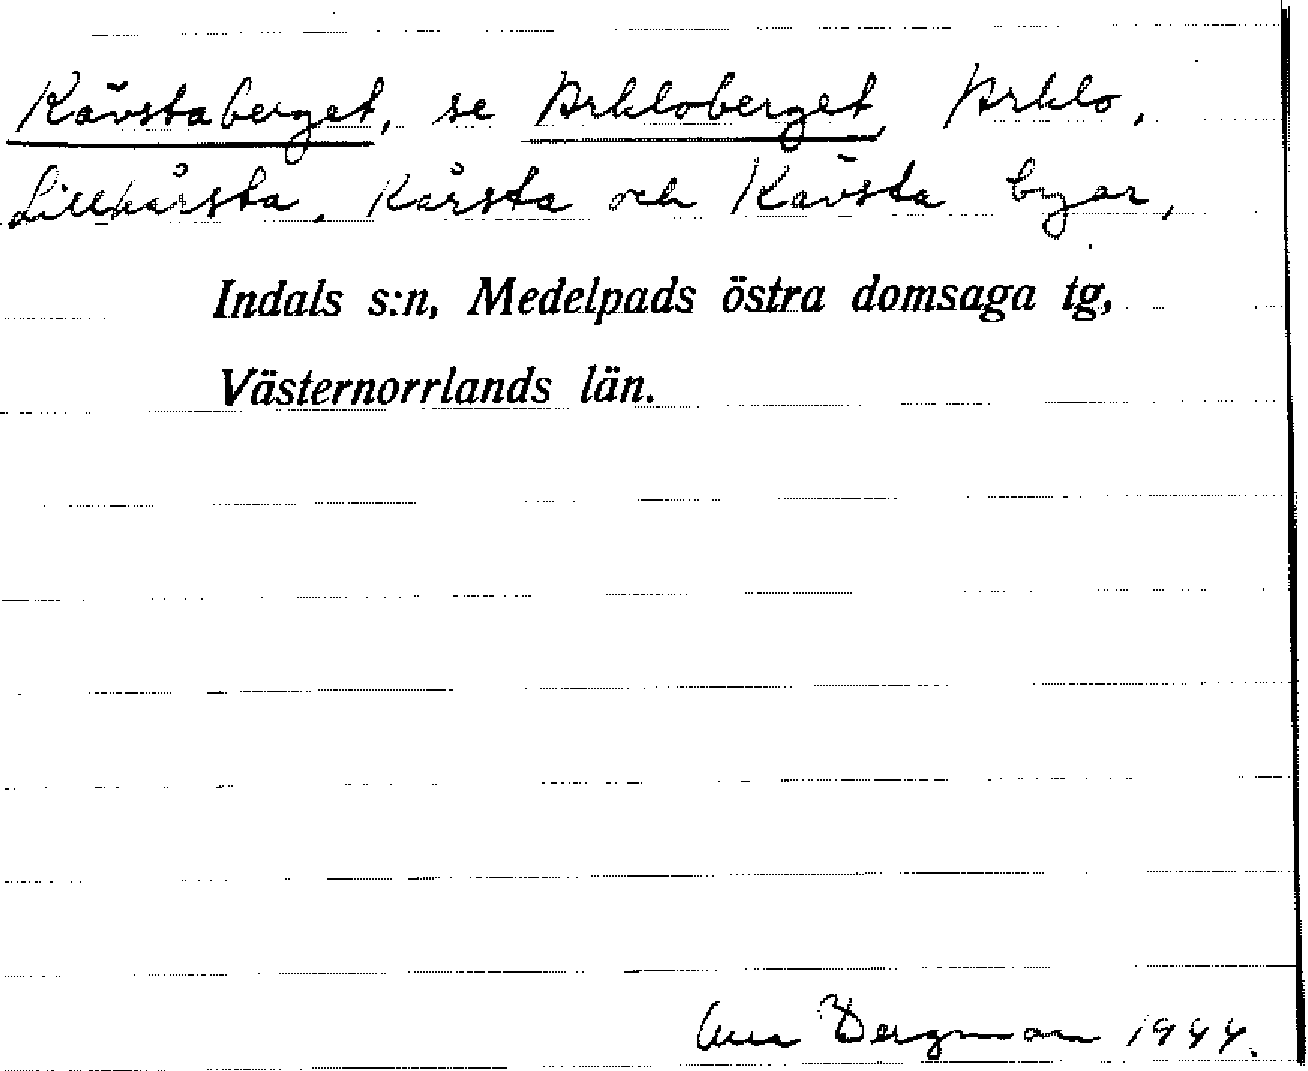 Kävstaberget, se Arkloberget, Arklo,
Lillkårsta, Kårsta och Kävsta byar,
Indals s:n, Medelpads östra domsaga tg,
Västernorrlands län.
Bergman 1944.